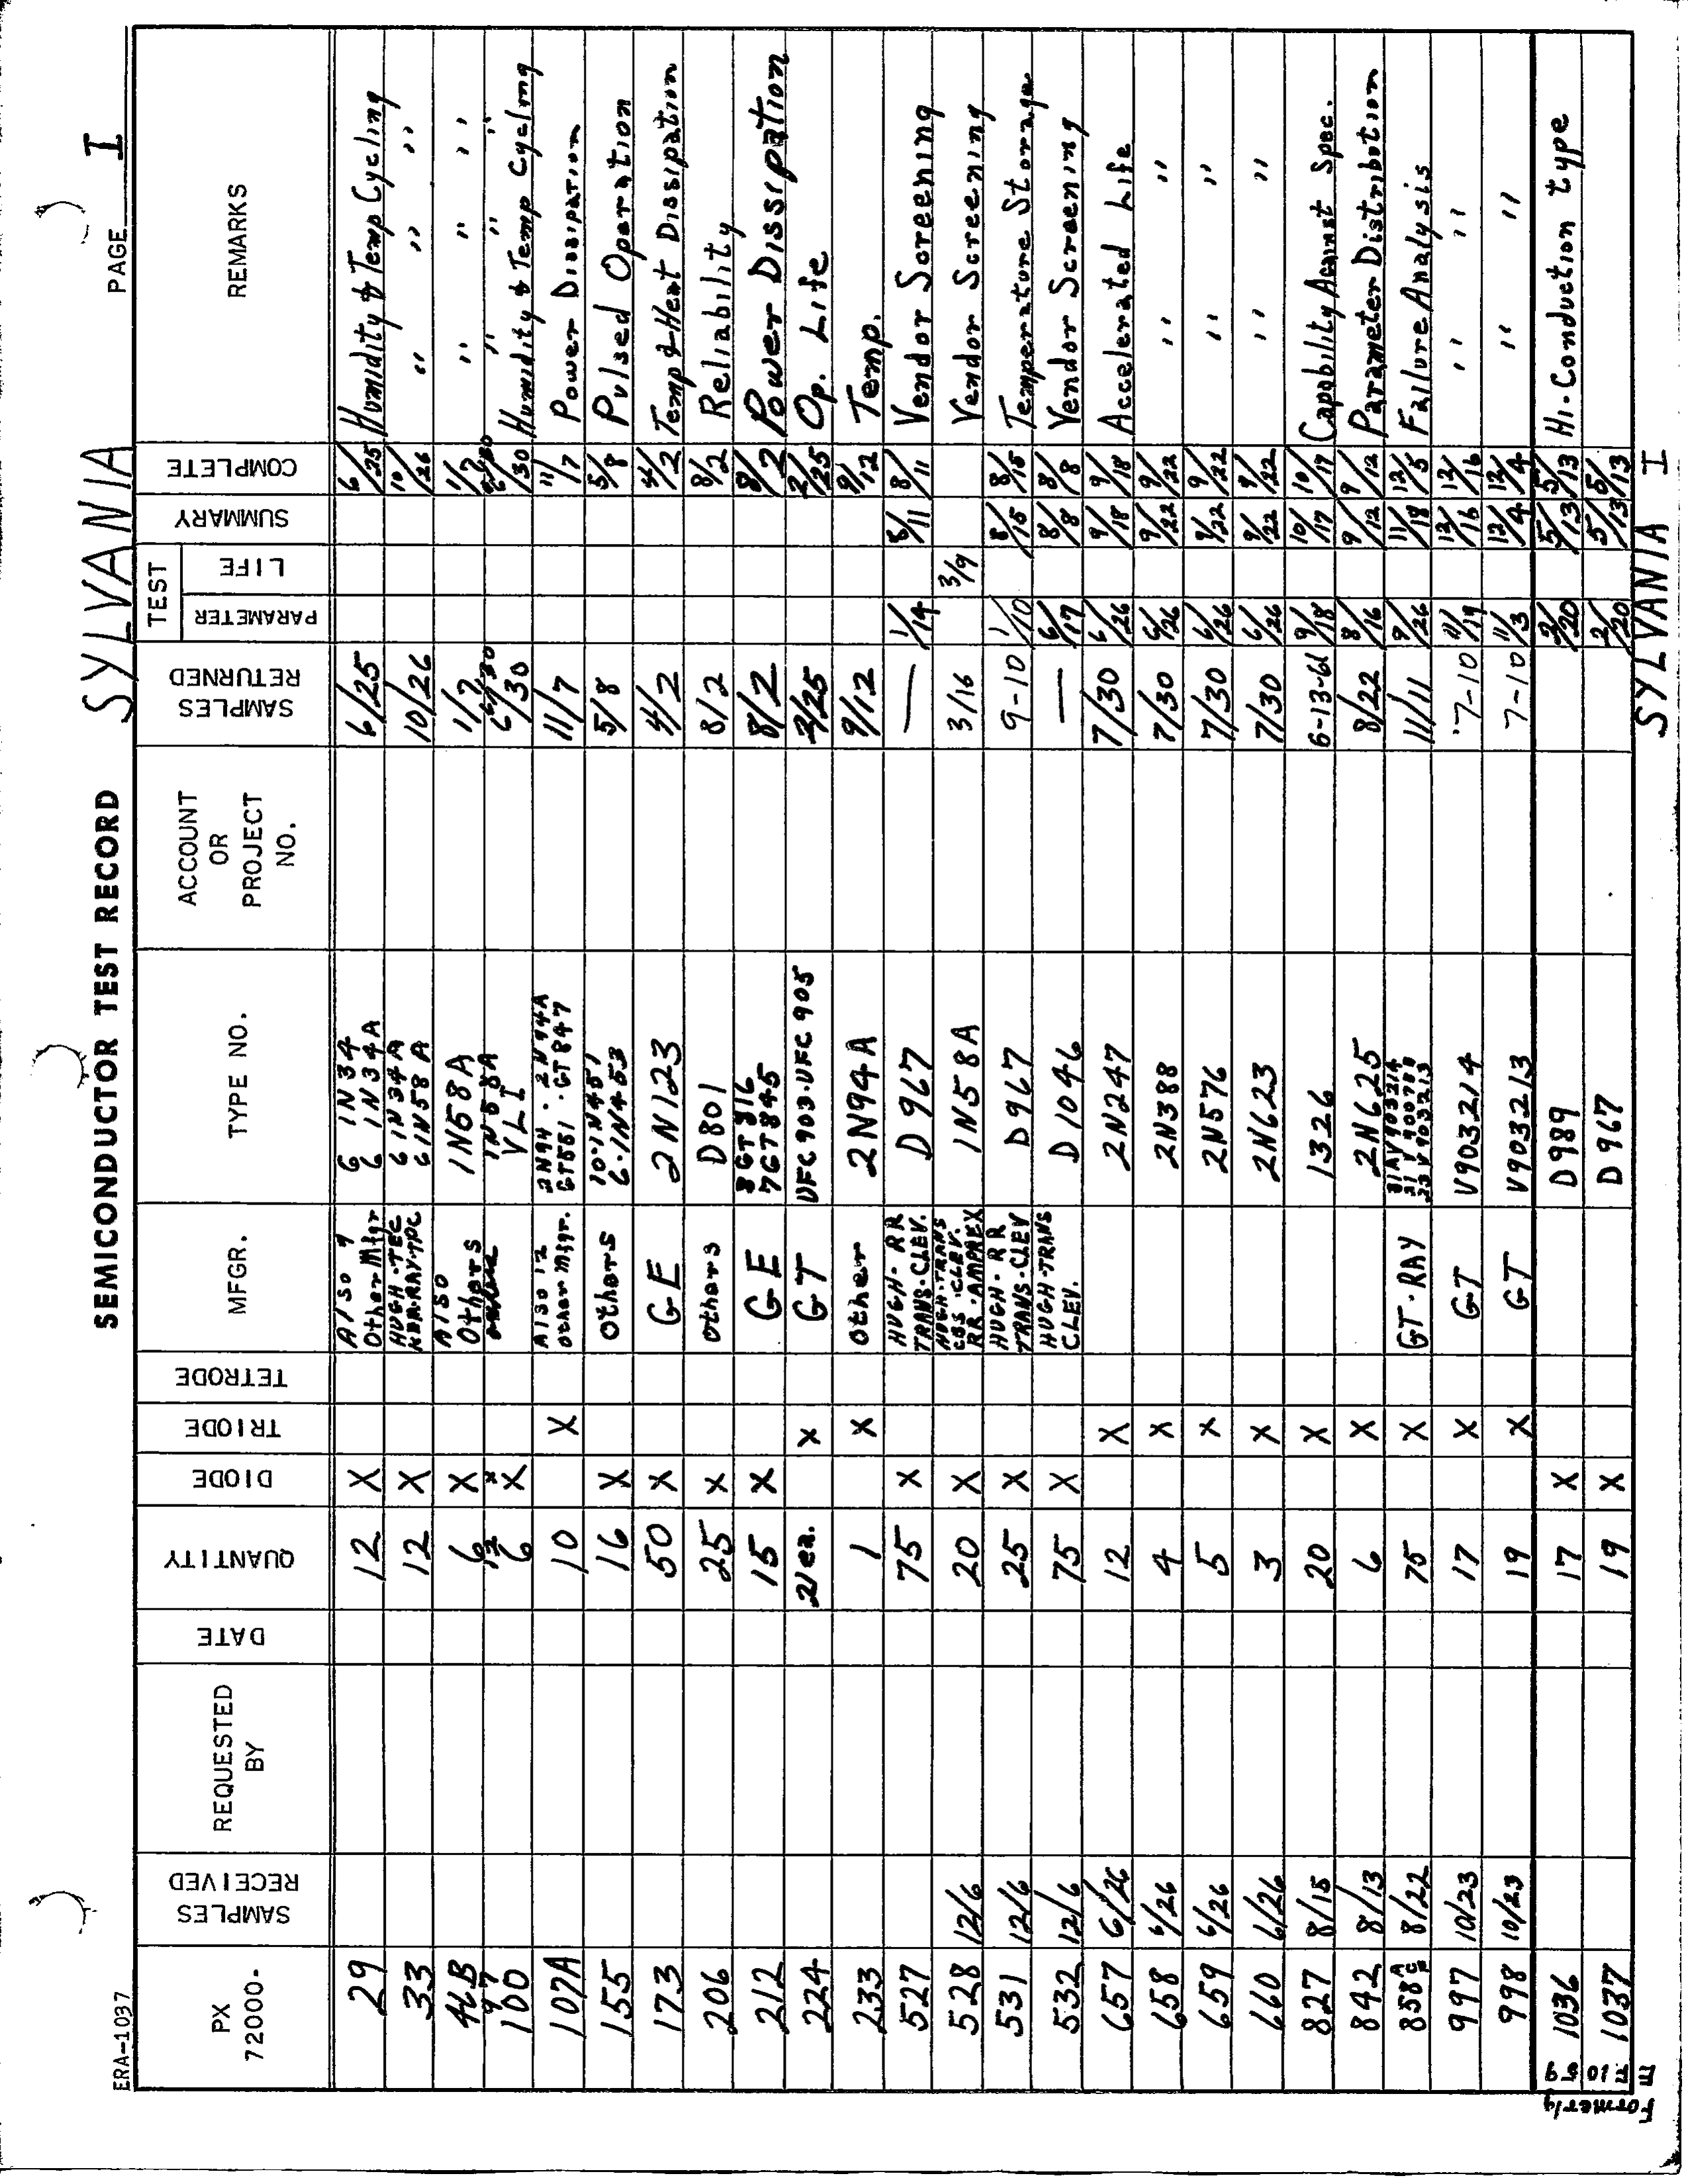 ERA-1037
SEMICONDUCTOR TEST RECORD
SYLVANIA
PAGE I
PX 72000- SAMPLES RECEIVED REQUESTED BY DATE QUANTITY DIODE TRIODE TETRODE MFGR. TYPE NO. ACCOUNT OR PROJECT NO. SAMPLES RETURNED TEST PARAMETER LIFE SUMMARY COMPLETE REMARKS
29 12 X Also 9 Other Mfgr 6 1N34 6 1N34A 6/25 6/25 Humidity & Temp Cycling
33 12 X HUGH-TEC RAY-TPC 6 1N34A 6 1N58A 10/26 10/26 " " "
46B 6 X Also Others 1N58A 1/7 1/7 " " "
97 12 X 1N58A 6/30 6/30 " " "
100 6 X VLI 6/30 6/30 Humidity & Temp Cycling
107A 10 X Also 12 other Mfgr. 2N94 · 2N94A GT881 · GT847 11/7 11/7 Power Dissipation
155 16 X Others 10-1N451 6-1N453 5/8 5/8 Pulsed Operation
173 50 X GE 2N123 4/2 4/2 Temp & Heat Dissipation
206 25 X Others D801 8/2 8/2 Reliability
212 15 X GE 8 GT816 7 GT845 8/2 8/2 Power Dissipation
224 21 ea. X GT UFC903·UFC905 2/25 2/25 Op. Life
233 1 X Other 2N94A 9/12 9/12 Temp.
527 75 X HUGH-RR TRANS-CLEV. D967 — 1/14 8/11 8/11 Vendor Screening
528 12/6 20 X HUGH-TRANS CBS-CLEV. RR-AMPREX 1N58A 3/16 3/9 Vendor Screening
531 12/6 25 X HUGH-RR TRANS-CLEV D967 9-10 1/10 8/15 8/15 Temperature Storage
532 12/6 75 X HUGH-TRANS CLEV. D1046 — 6/17 8/8 8/8 Vendor Screening
657 6/26 12 X 2N247 7/30 6/26 9/18 9/18 Accelerated Life
658 6/26 4 X 2N388 7/30 6/26 9/22 9/22 " "
659 6/26 5 X 2N576 7/30 6/26 9/22 9/22 " "
660 6/26 3 X 2N623 7/30 6/26 9/22 9/22 " "
827 8/15 20 X 1326 6-13-61 9/18 10/17 10/17 Capability Against Spec.
842 8/13 6 X 2N625 8/22 8/16 9/12 9/12 Parameter Distribution
858 8/22 75 X GT-RAY 11/11 9/26 11/18 12/5 Failure Analysis
997 10/23 17 X GT V903214 7-10 11/19 12/16 12/16 " "
998 10/23 19 X GT V903213 7-10 11/3 12/4 12/4 " "
1036 17 X D989 2/20 5/13 5/13 Hi-Conduction type
1037 19 X D967 2/20 5/13 5/13
Formerly
SYLVANIA I